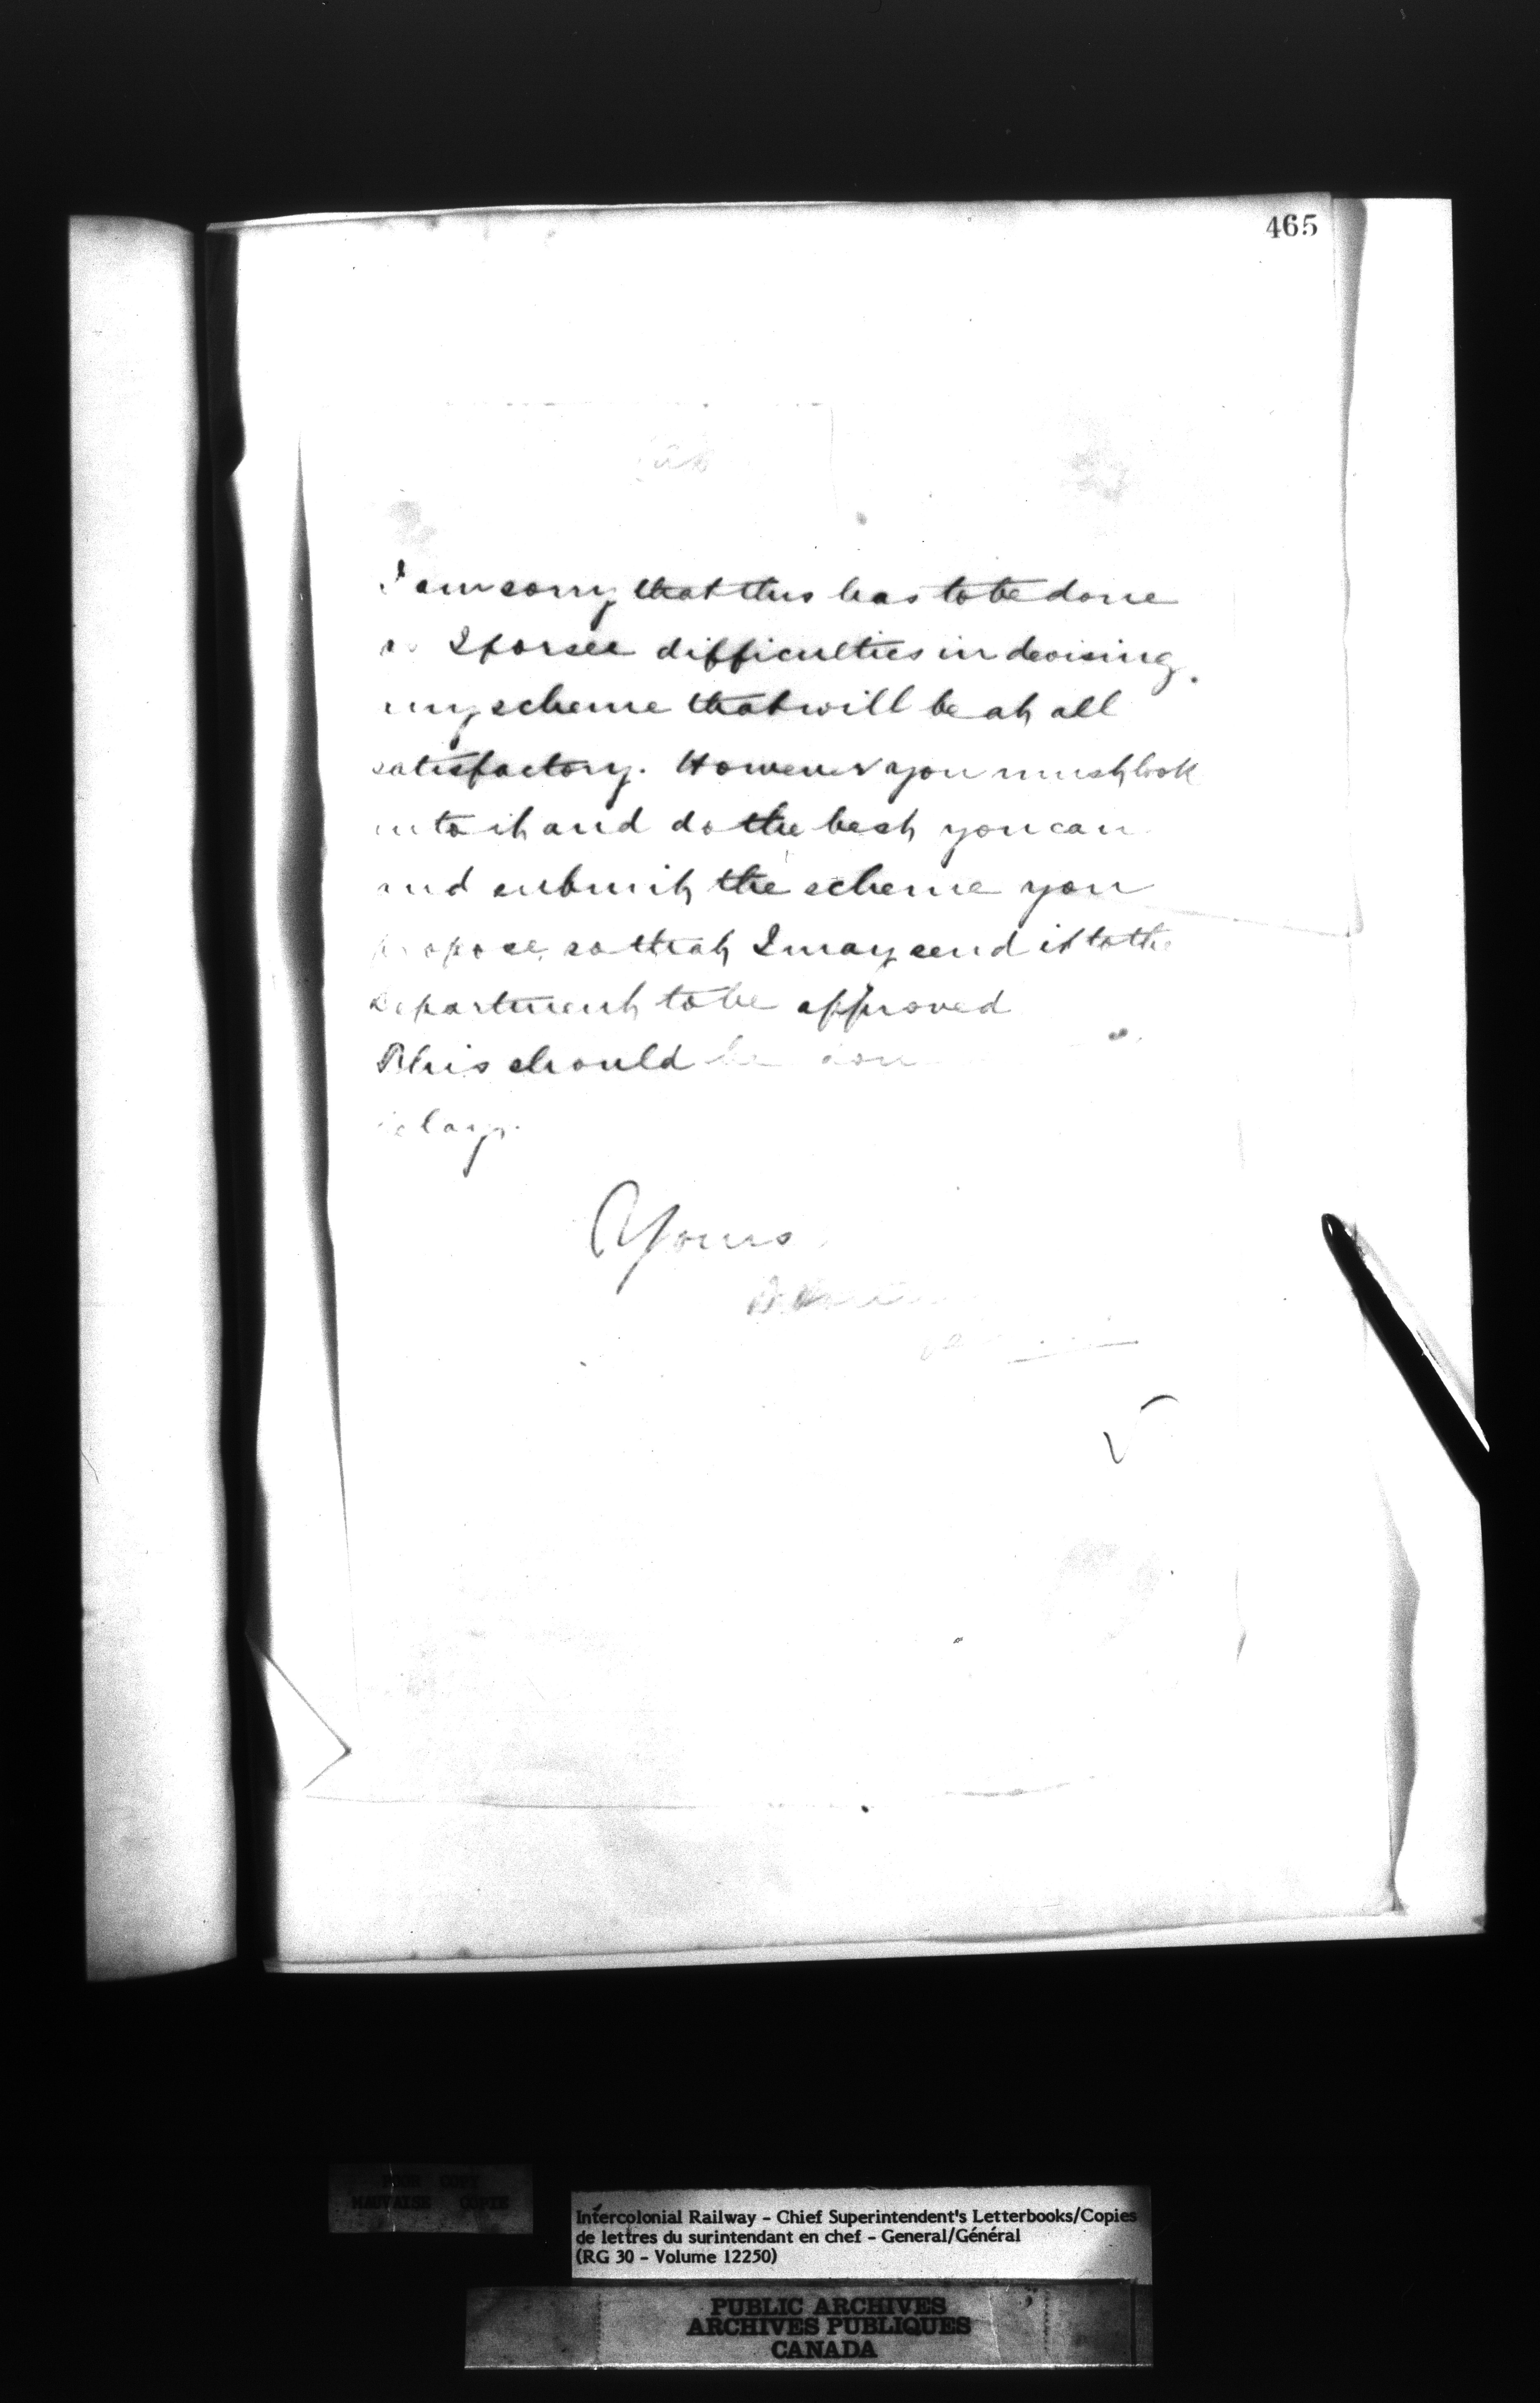 465
I am sorry that this has to be done
as I forsee difficulties in devising
any scheme that will be at all
satisfactory. However you must look
into it and do the best you can
and submit the scheme you
propose, so that I may send it to the
Department to be approved
This should be done
delay.
Yours
POOR COPY
MAUVAISE COPIE
Intercolonial Railway - Chief Superintendent's Letterbooks/Copies
de lettres du surintendant en chef - General/Général
(RG 30 - Volume 12250)
PUBLIC ARCHIVES
ARCHIVES PUBLIQUES
CANADA